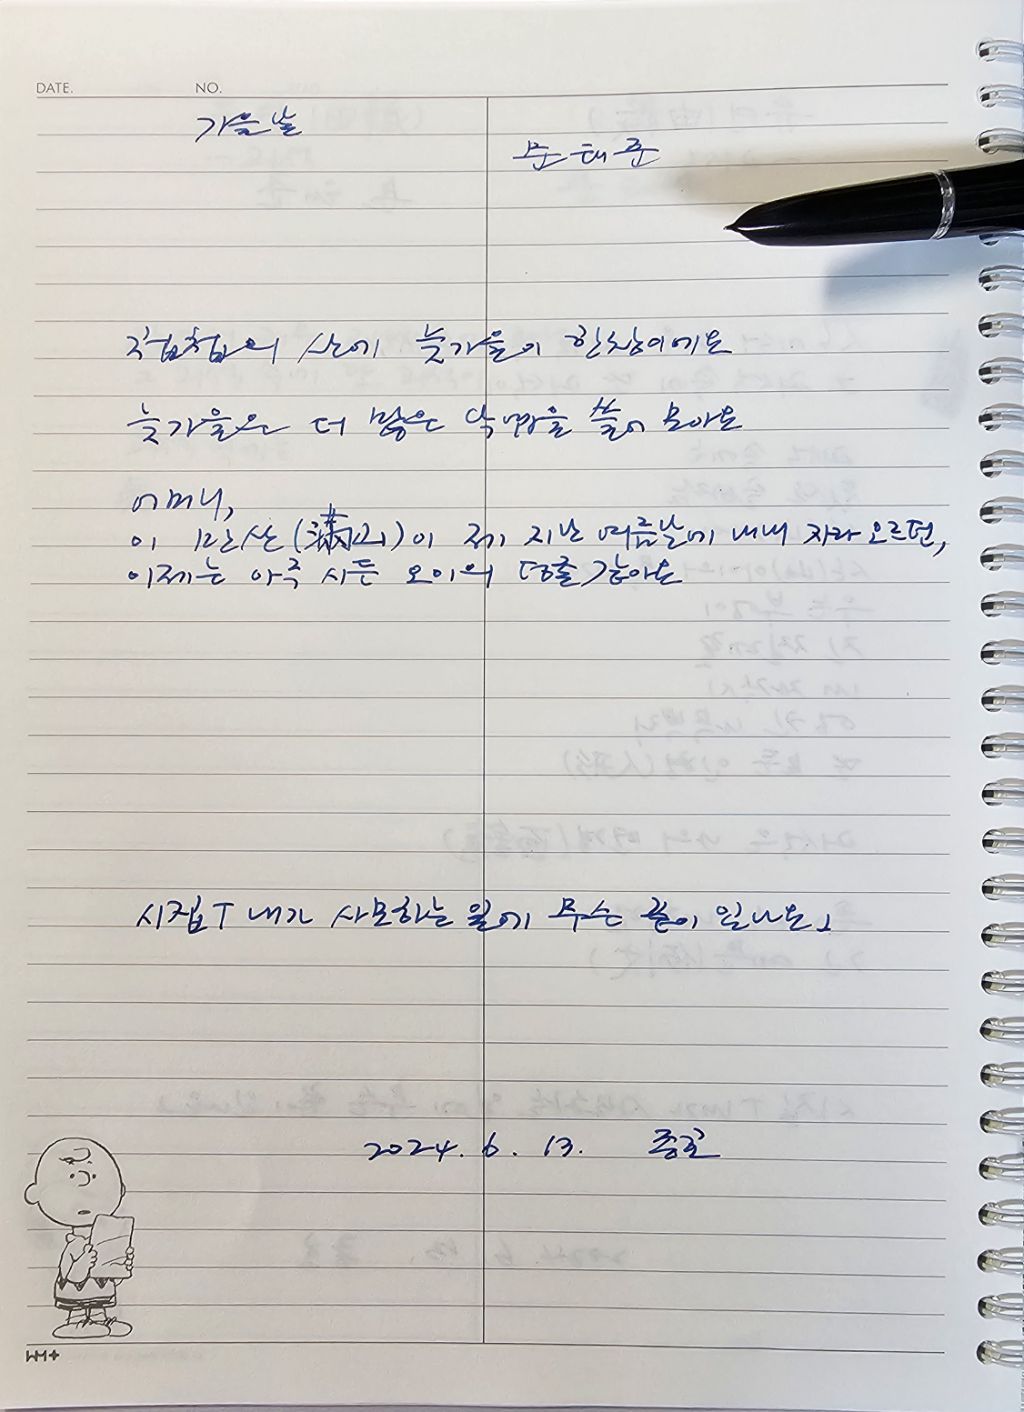 DATE. NO.
가을날
문태준
첩첩의 산에 늦가을이 한창이에요
늦가을은 더 많은 낙명을 쓸어 모아요
어머니,
이 만산(滿山)이 제 지난 여름날에 내내 자라 오르던,
이제는 아주 시든 오이의 덩굴 같아요
시집「내가 사모하는 일에 무슨 끝이 있나요」
2024. 6. 13. 종호
WM+